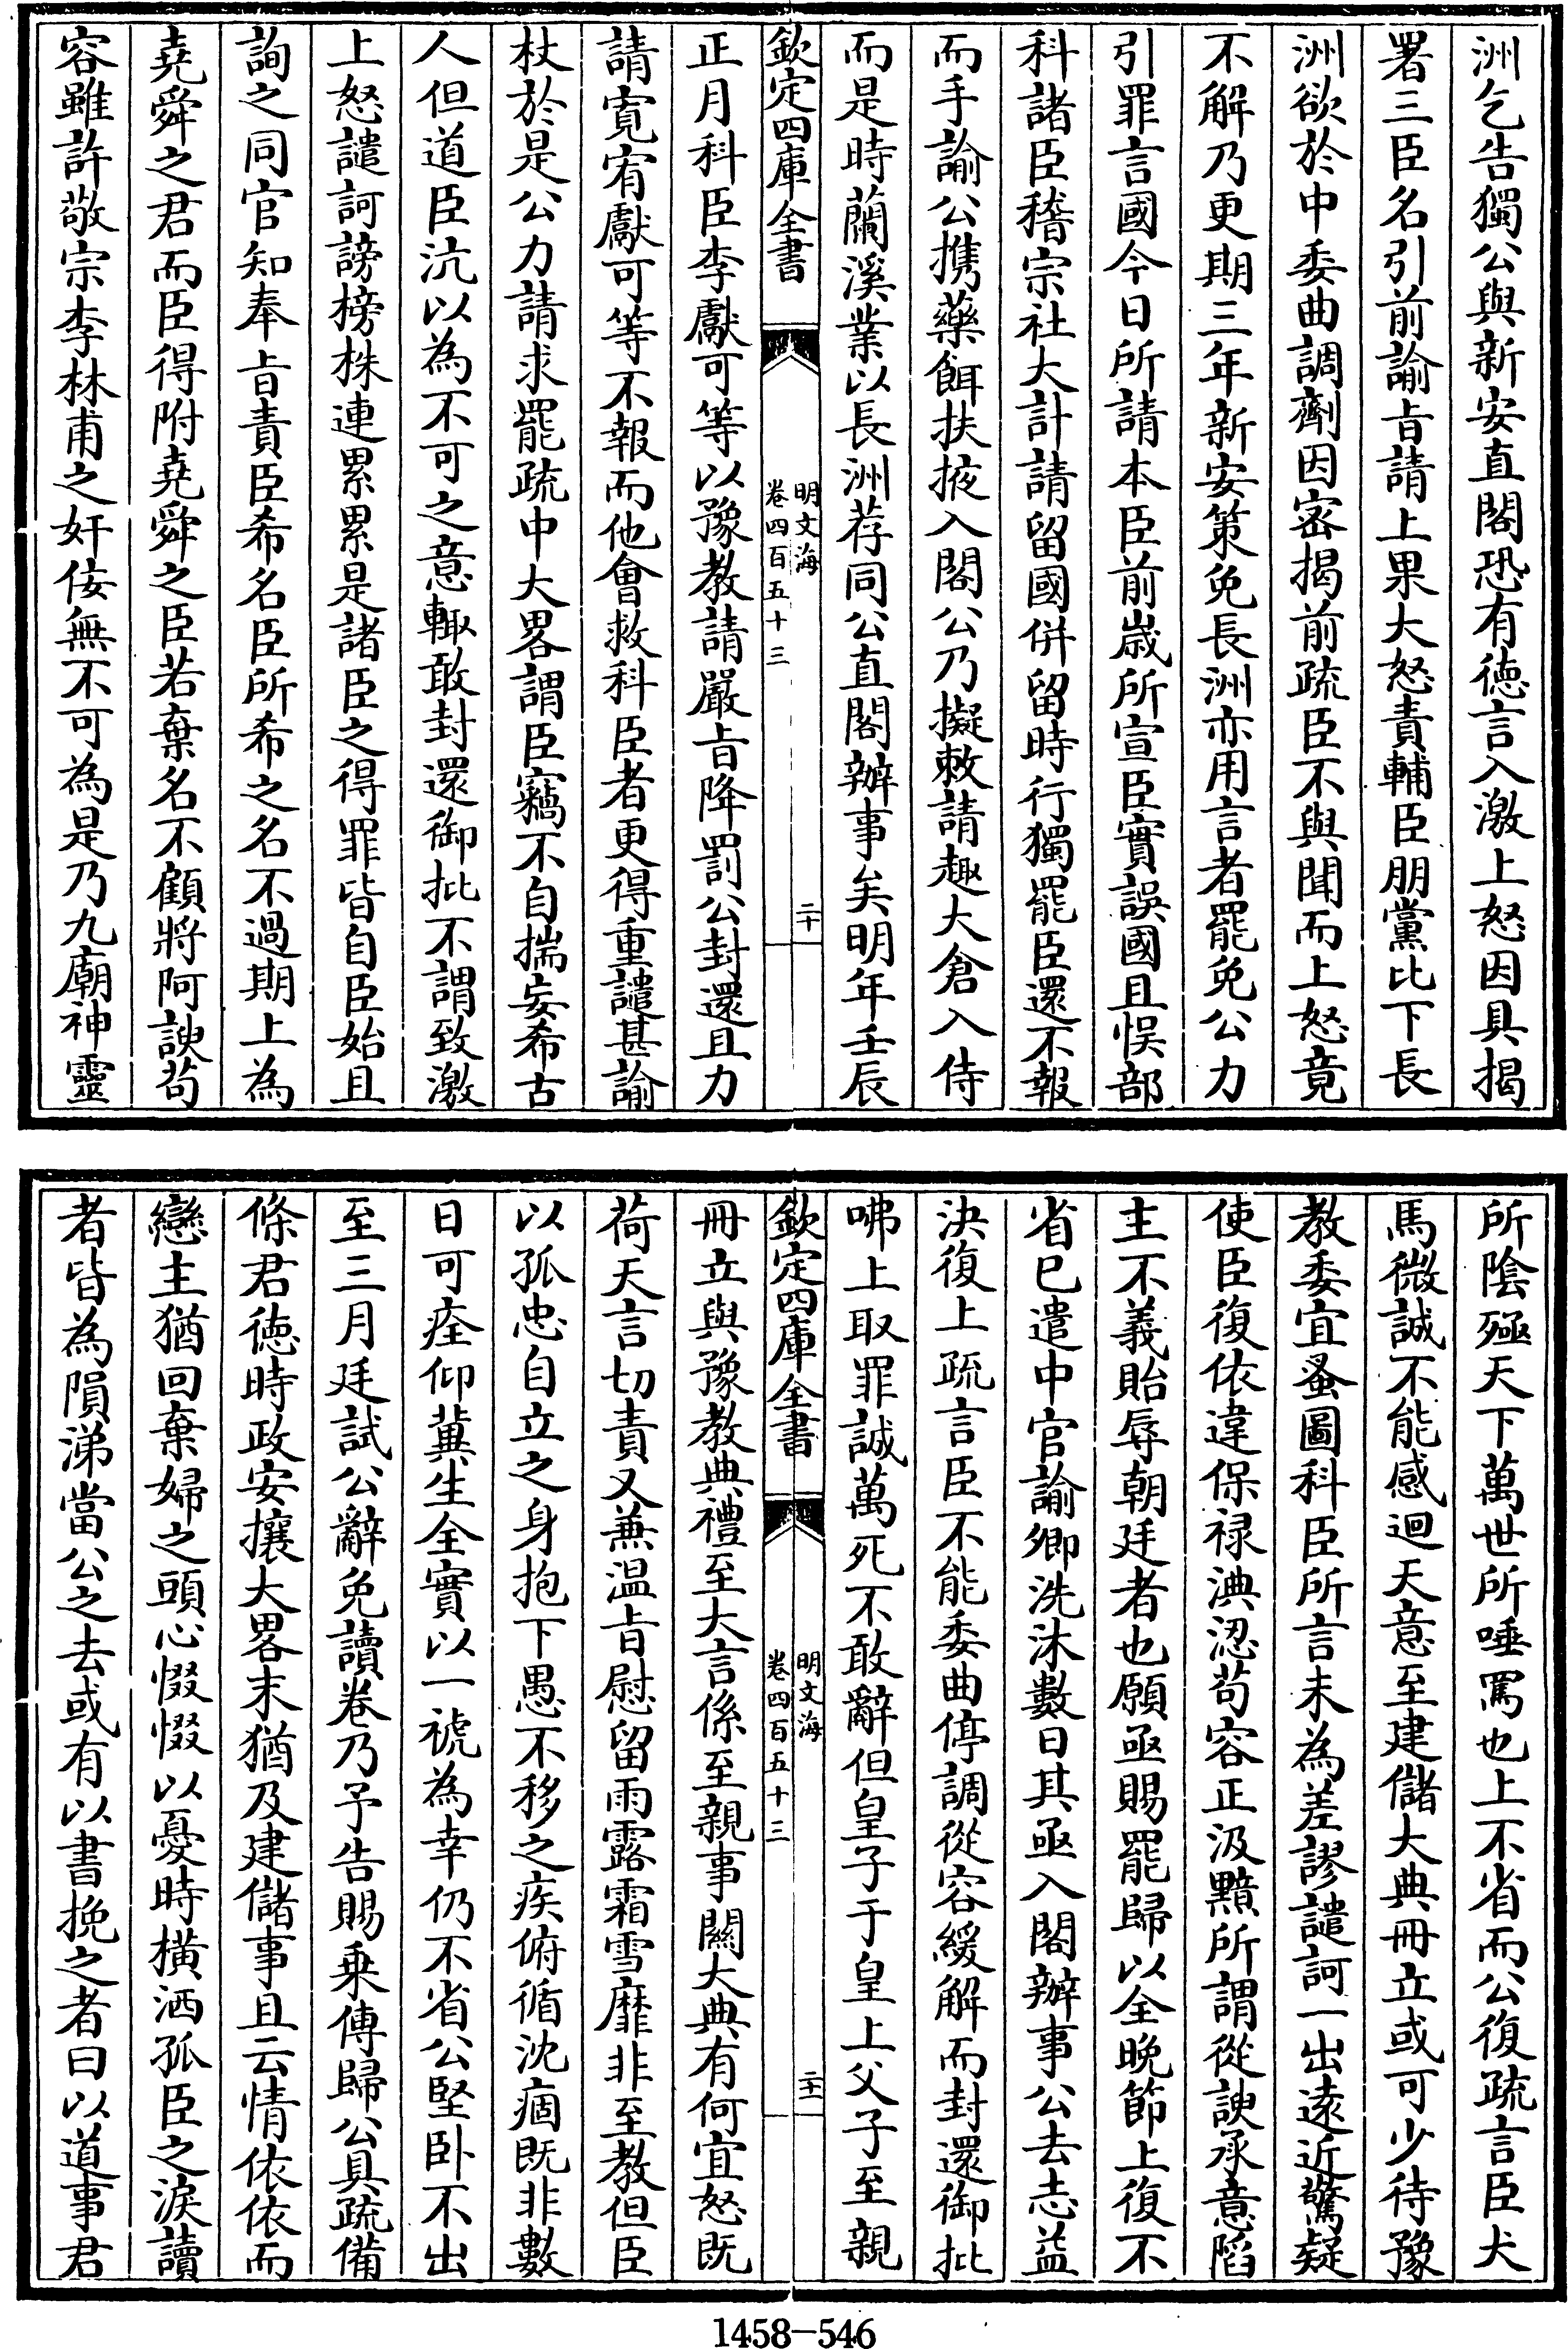 洲乞告獨公與新安直閣恐有徳言入激上怒因具揭
署三臣名引前諭㫖請上果大怒責輔臣朋黨比下長
洲欲於中委曲調劑因密揭前疏臣不與聞而上怒竟
不解乃更期三年新安策免長洲亦用言者罷免公力
引罪言國今日所請本臣前歳所宣臣實誤國且悮部
科諸臣稽宗社大計請留國併留時行獨罷臣還不報
而手諭公携藥餌扶掖入閣公乃擬敕請趣大倉入侍
而是時蘭溪業以長洲荐同公直閣辦事矣明年壬辰
欽定四庫全書
明文海
卷四百五十三
二十
正月科臣李獻可等以豫教請嚴㫖降罰公封還且力
請寛宥獻可等不報而他會救科臣者更得重譴甚諭
杖於是公力請求罷疏中大畧謂臣竊不自揣妄希古
人但道臣沆以為不可之意輙敢封還御批不謂致激
上怒譴訶謗榜株連累累是諸臣之得罪皆自臣始且
詢之同官知奉㫖責臣希名臣所希之名不過期上為
堯舜之君而臣得附堯舜之臣若棄名不顧將阿諛茍
容雖許敬宗李林甫之奸佞無不可為是乃九廟神靈
所陰殛天下萬世所唾罵也上不省而公復疏言臣犬
馬微誠不能感迴天意至建儲大典冊立或可少待豫
教委宜蚤圖科臣所言未為差謬譴訶一出逺近驚疑
使臣復依違保禄淟涊茍容正汲黯所謂從諛承意陷
主不義貽辱朝廷者也願亟賜罷歸以全晚節上復不
省已遣中官諭卿洗沐數日其亟入閣辦事公去志益
決復上疏言臣不能委曲停調從容緩解而封還御批
咈上取罪誠萬死不敢辭但皇子于皇上父子至親
欽定四庫全書
明文海
卷四百五十三
二十一
冊立與豫教典禮至大言係至親事關大典有何宜怒既
荷天言切責又兼温㫖慰留雨露霜雪靡非至教但臣
以孤忠自立之身抱下愚不移之疾俯循沈痼既非數
日可痊仰冀生全實以一褫為幸仍不省公堅卧不出
至三月廷試公辭免讀卷乃予告賜乗傳歸公具疏備
條君徳時政安攘大畧末猶及建儲事且云情依依而
戀主猶回棄婦之頭心惙惙以憂時横洒孤臣之淚讀
者皆為隕涕當公之去或有以書挽之者曰以道事君
1458-546